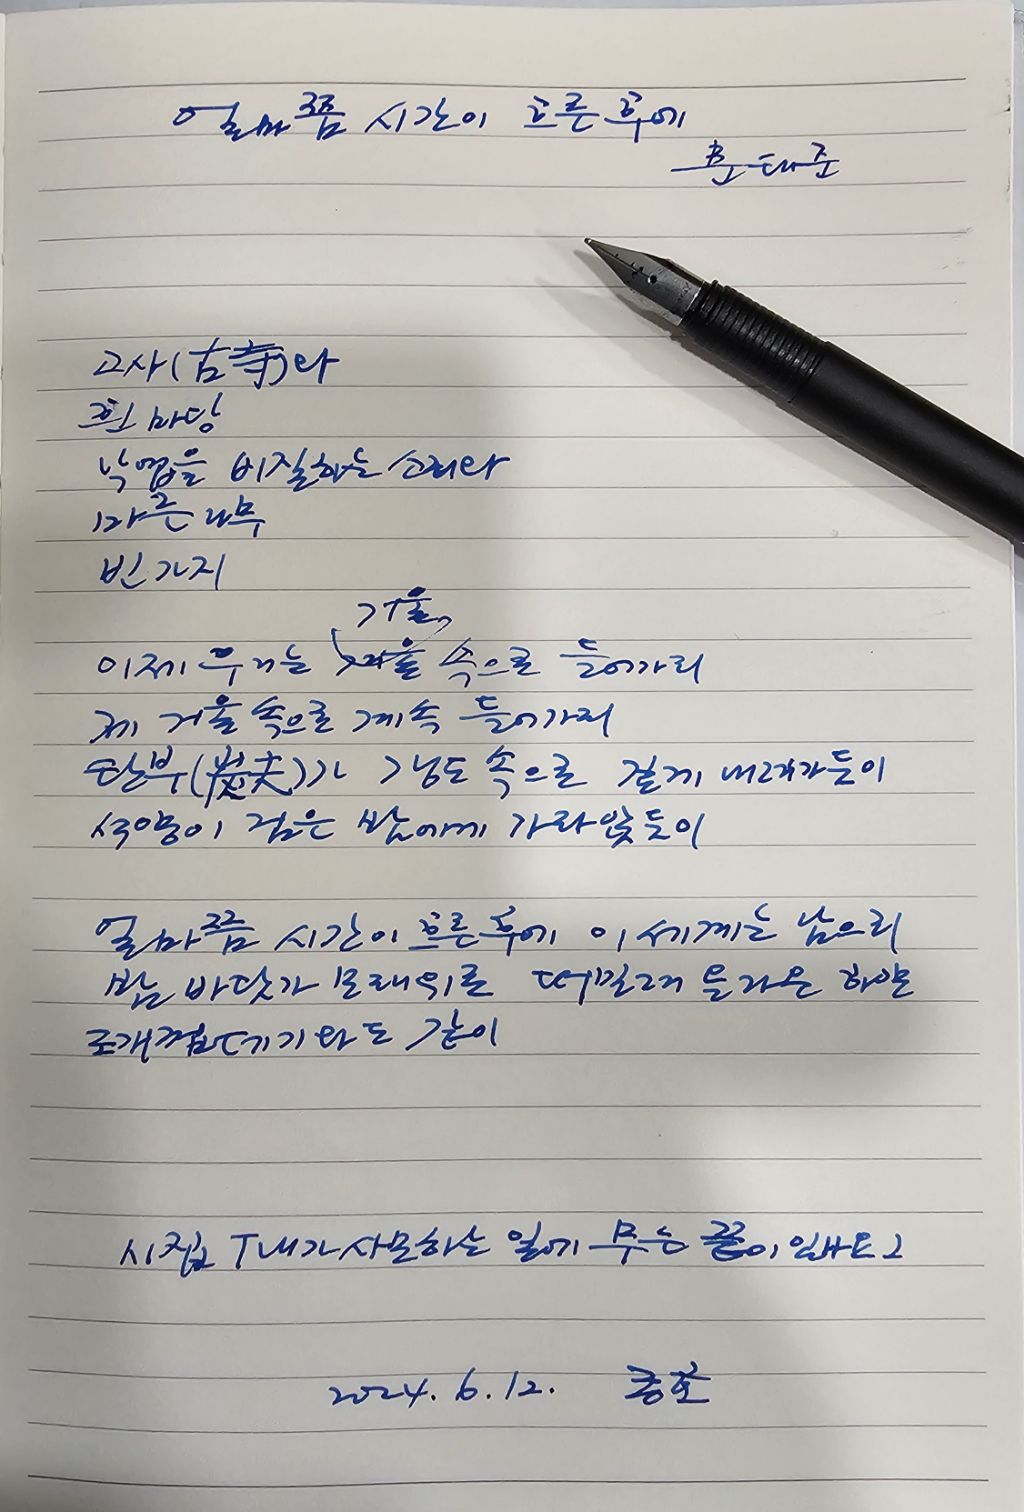 얼마쯤 시간이 흐른 후에
문태준
고사(古寺)와
흰 마당
낙엽을 비질하는 소리와
마른 나무
빈 가지
거울
이제 우리는 겨울 속으로 들어가리
제 거울 속으로 계속 들어가리
탄부(炭夫)가 갱도 속으로 걷게 내려가듯이
석양이 검은 밤에게 가라앉듯이
얼마쯤 시간이 흐른 후에 이 세계는 남으리
밤 바닷가 모래 위로 떠밀려 올라온 하얀
조개껍데기와도 같이
시집 『내가 사모하는 일에 무슨 끝이 있나요』
2024. 6. 12.